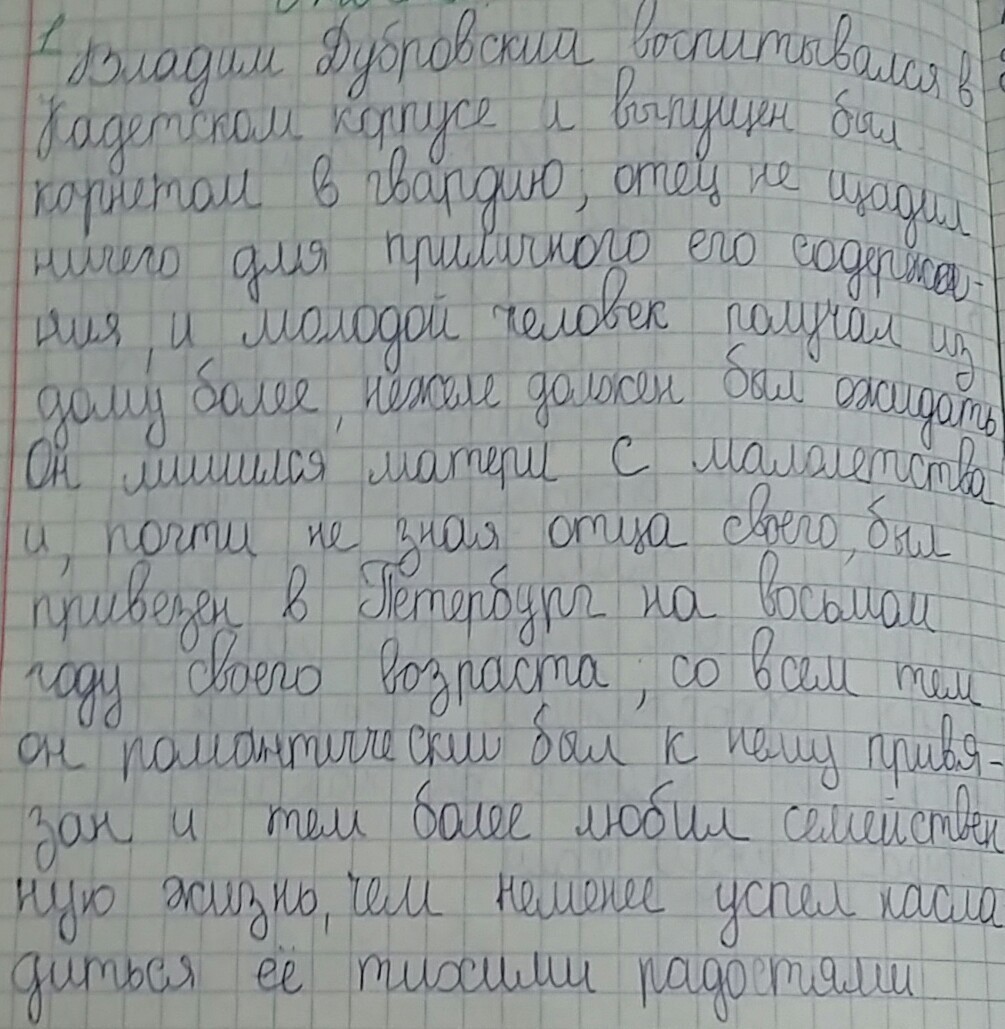 1
Владим Дубровский воспитывался в
Кадетском корпусе и выпущен был
корнетом в гвардию; отец не щадил
ничего для приличного его содержа-
ния, и молодой человек получал из
дому более, нежеле должен был ожидать
Он лишился матери с малолетства
и, почти не зная отца своего, был
привезен в Петербург на восьмом
году своего возраста; со всем тем
он романтически был к нему привя-
зан и тем более любил семействен
ную жизнь, чем неменее успел насла
диться её тихими радостями